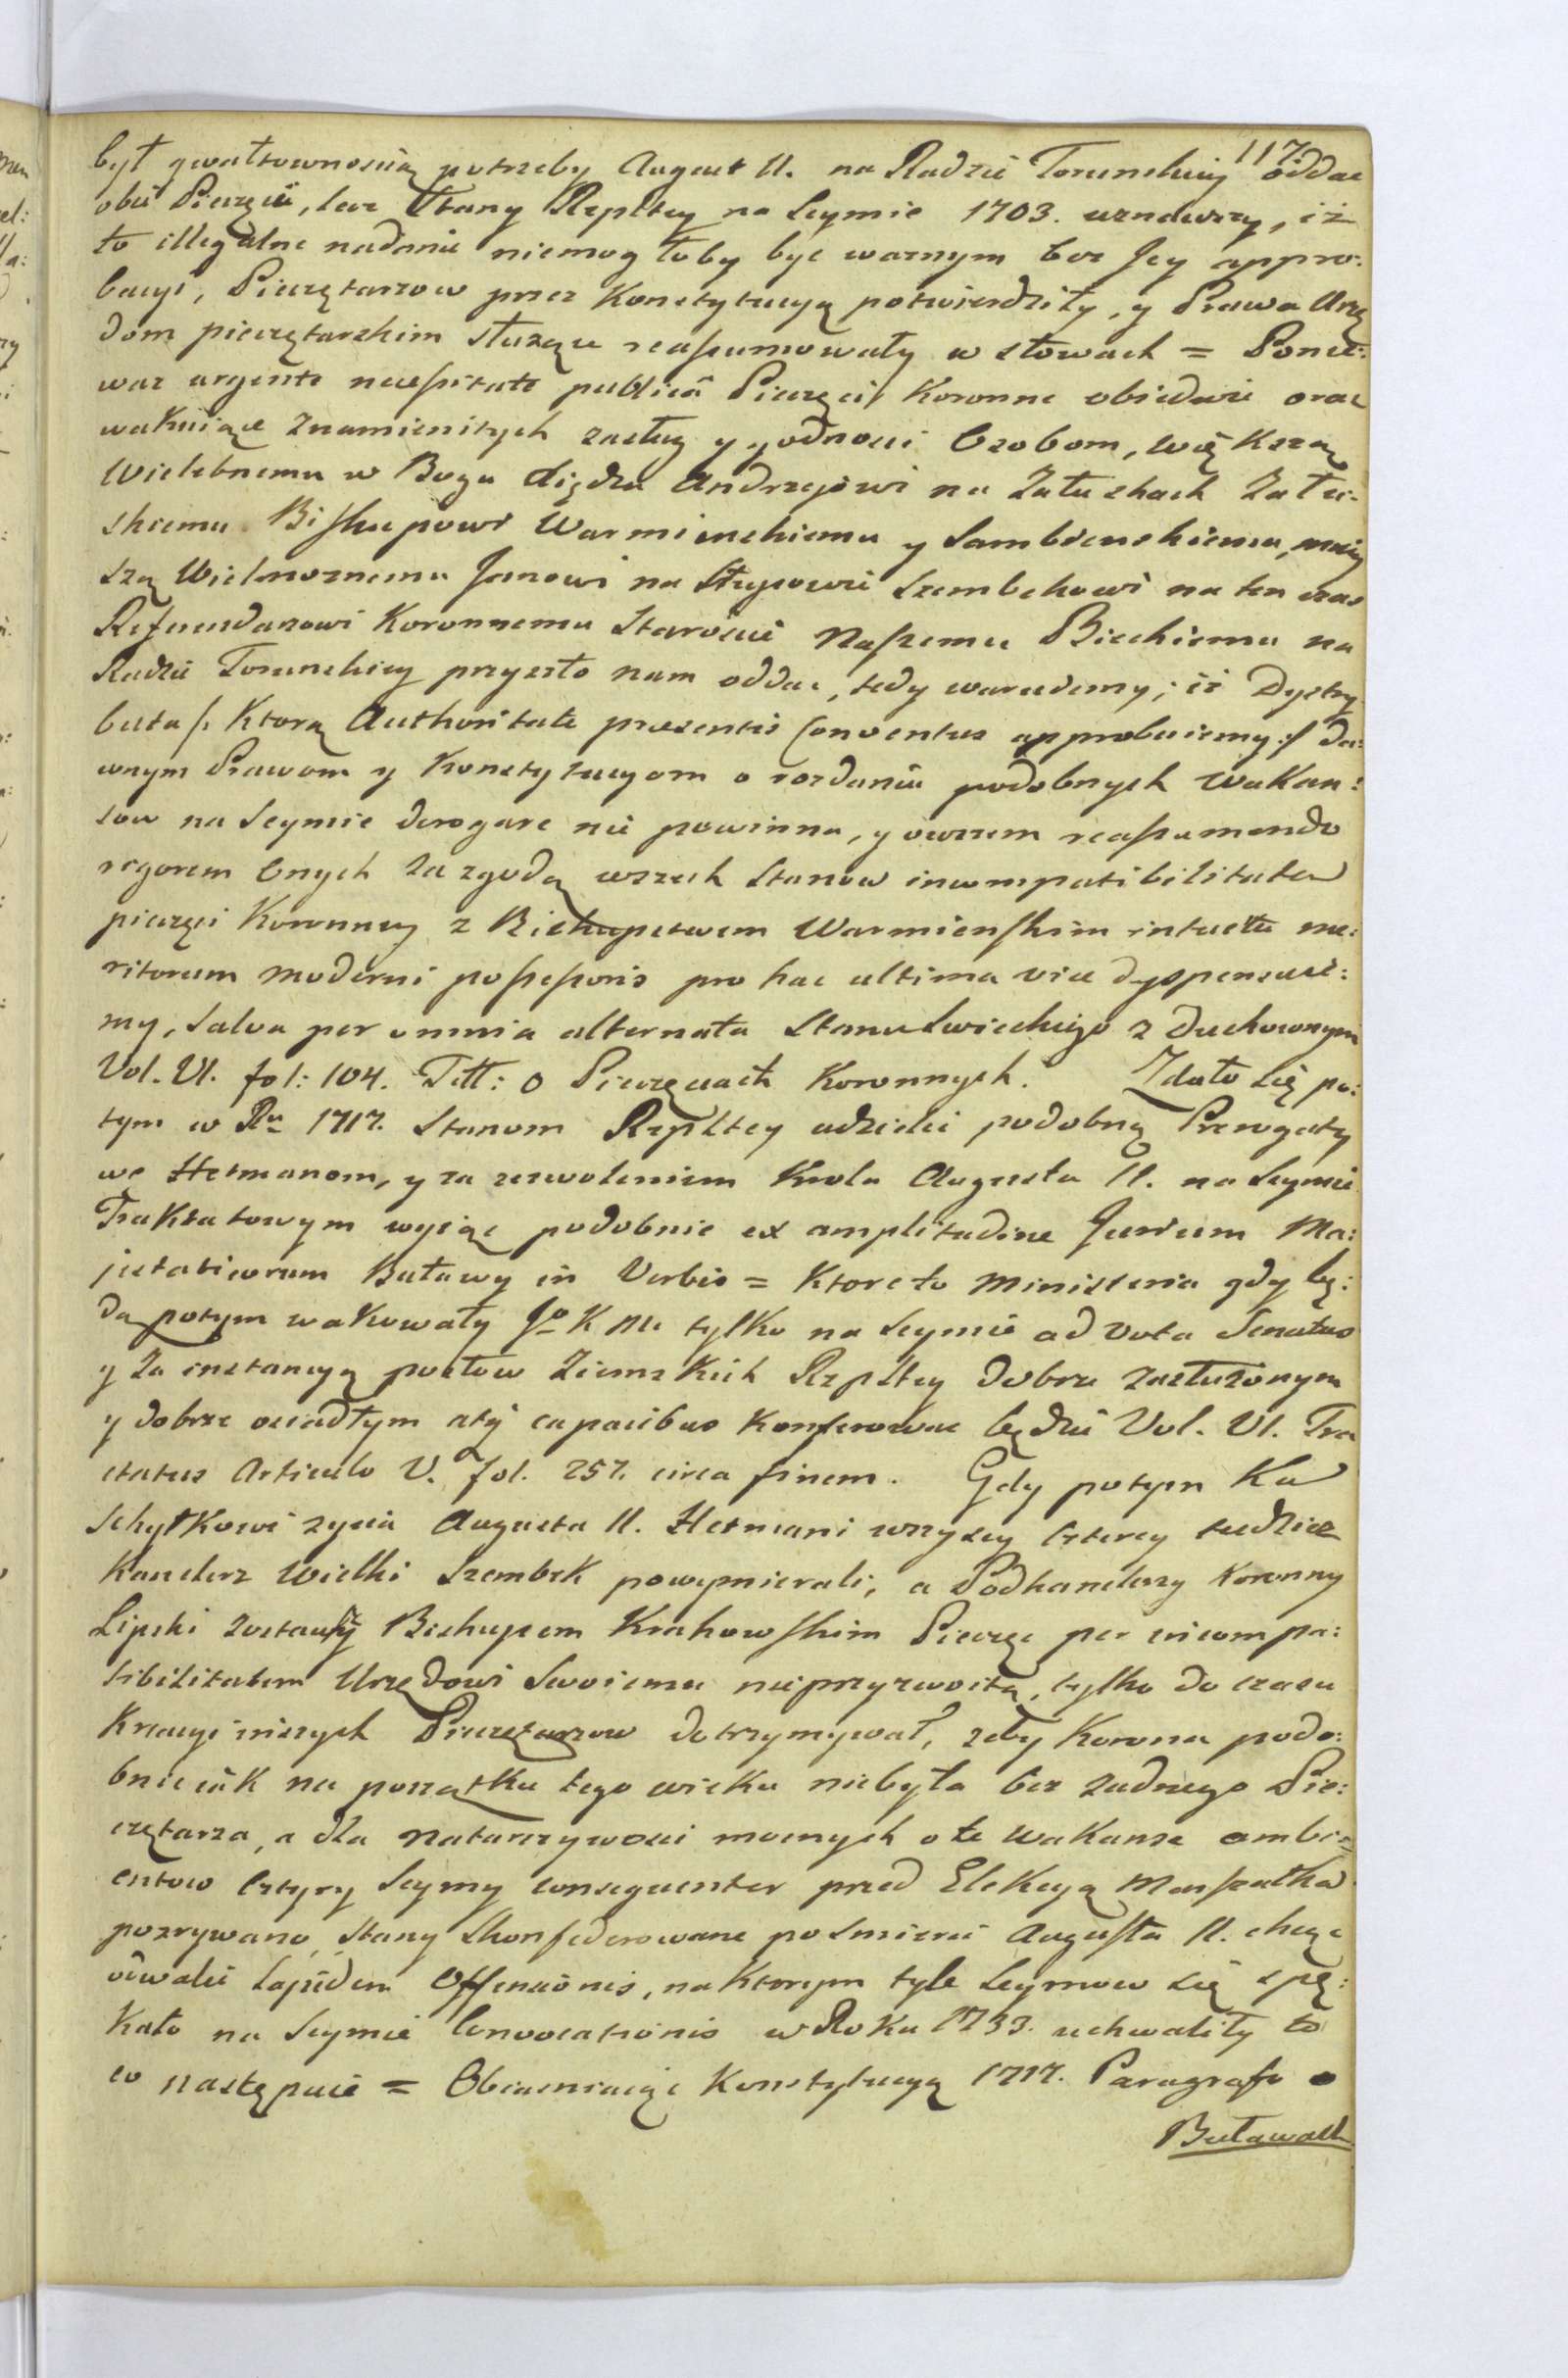 117.
był gwałtownością potrzeby August II. na Radzie Torunskiey oddac
obie Pieczęcie, lecz Stany Rzpltey na Seymie 1703. uznawszy, iż
to illegalne nadanie niemogłoby byc ważnym bez Jey appro:
bacyi, Pieczętarzow przez Konstytucyą potwierdziły, y Prawa Urzę
dom pieczętarskim służące reassumowały w słowach = Ponie:
waz urgente necessitate publicâ Pieczęci Koronne obiedwie oraz
wakuiące Znamienitych zasług y godnosci Osobom, większą
Wielebnemu w Bogu Xiędzu Andrzejowi na Załuskach Zału:
skiemu Biskupowi Warmienskiemu y Sambienskiemu, mniey
szą Wielmoznemu Janowi na Słupowie Szembekowi na ten czas
Referendarzowi Koronnemu Staroscie Naszemu Bieckiemu na
Radzie Torunskiey przyszło nam oddac, tedy waruiemy; iż Dystry
buta /: Ktorą Authoritate praesentis Conventus approbuiemy :/ da:
wnym Prawom y Konstytucyom o rozdaniu podobnych Wakan:
sow na Seymie derogare nie powinna, y owszem reassumendo
rigorem Onych za zgodą wszech Stanow incompatibilitatem
pieczęci Koronney z Biskupstwem Warmienskim intuitu me:
ritorum moderni possessoris pro hac ultima vice dyspensuie:
my, salva per omnia alternata Stanu Swieckiego z Duchownym
Vol. VI. fol: 104. Titt: o Pieczęciach Koronnych. Zdało się po:
tym w Ru 1717. Stanom Rzpltey udzielic podobną Prerogaty
wę Hetmanom, y za zezwoleniem Krola Augusta II. na Seymie
Traktatowym wyiąc podobnie ex amplitudine Jurium Ma:
jestaticorum Buławy in Verbis = Ktore to Ministeria gdy bę:
dą potym wakowały Jo K Mc tylko na Seymie ad vota Senatus
y za instancyą posłow Ziemskich Rzpltey dobrze zasłużonym
y dobrze osiadłym atq capacibus konferowac będzie Vol. VI. Tra
ctatus Articulo V. fol. 257. circa finem. Gdy potym Ku
Schyłkowi zycia Augusta II. Hetmani wszyscy Czterey tudziez
Kanclerz Wielki Szembek powymierali, a Podkanclerzy Koronny
Lipski zostawszy Biskupem Krakowskim Pieczęc per incompa:
tibilitatem Urzędowi Swoiemu nieprzyzwoitą, tylko do czasu
Kreacyi inszych Pieczętarzow dotrzymywał, żeby Korona podo:
bnie iâk na początku tego wieku niebyła bez żadnego Pie:
czętarza, a dla natarczywosci mocnych o te wakanse ambi=
entow Cztyry Seymy consequenter przed Elekcyą Marszałka
pozrywano, Stany Skonfederowane po smierci Augusta II. chcąc
uwalic Lapidem Offensionis, na Ktorym tyle Seymow się spę:
kało na Seymie Convocationis w Roku 1733. uchwaliły to
co następuie = Obiasniaiąc Konstytucyą 1717. Paragrafo o
Buławach